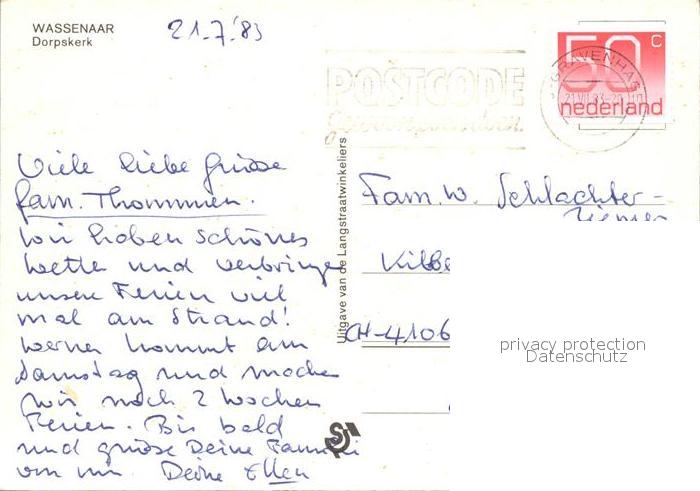 WASSENAAR
Dorpskerk
21.7.'83
POSTCODE
50 c
nederland
'S-GRAVENHAGE
Uitgave van de Langstraatwinkeliers
Viele liebe Grüsse
fam. Thommen.
Wir haben schönes
Wetter und verbringen
unsere Ferien viel
mal am Strand!
Werner kommt am
Samstag und mache
wir noch 2 Wochen
Ferien. Bis bald
und grüsse Deine Familie
von mir. Deine Ellen
Fam. W. Schlachter-
Ziemer
CH-4106
privacy protection
Datenschutz